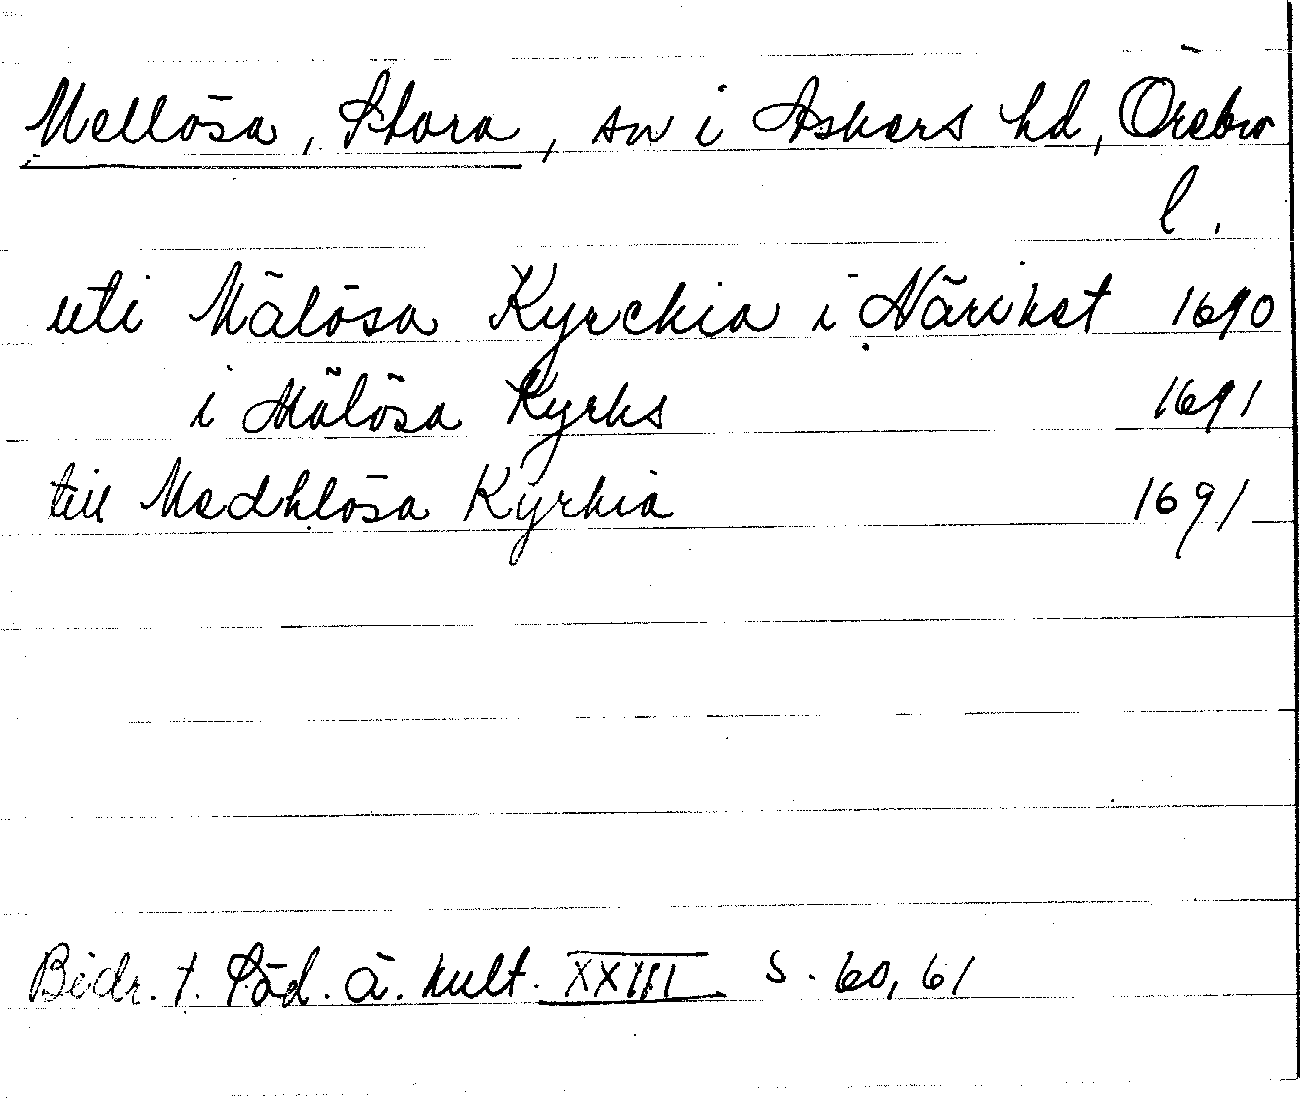 Mellösa, Stora, sn i Askers hd, Örebro
l.
uti Mälösa Kyrckia i Näriket 1690
i Mälösa Kyrks 1691
till Medhlösa Kyrkia 1691
Bidr. t. Söd. ä. kult. XXIII s. 60, 61